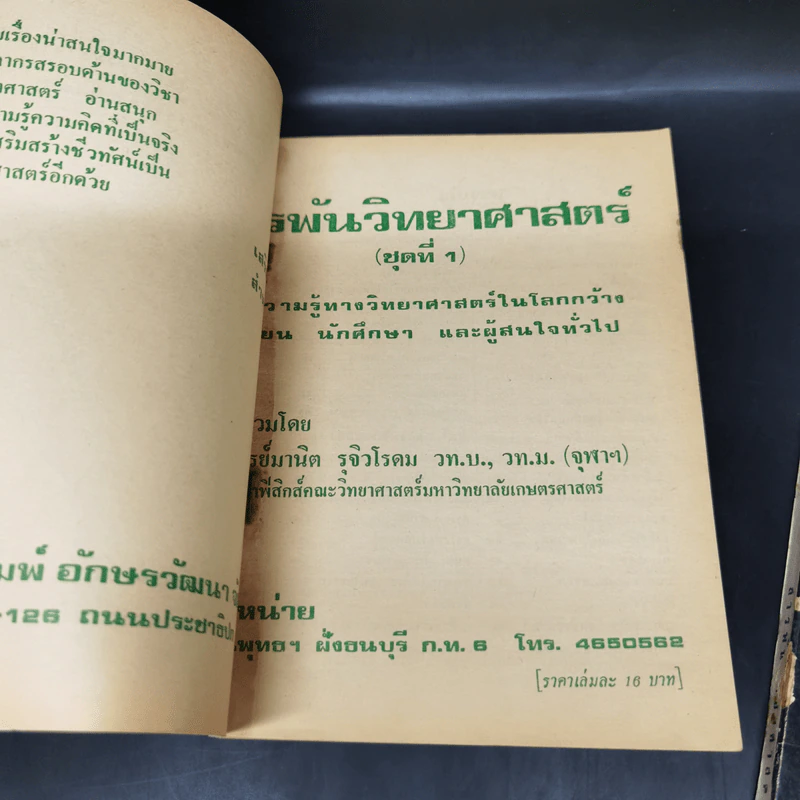 เรื่องน่าสนใจมากมาย
ากรสรอบด้านของวิชา
ศาสตร์ อ่านสนุก
ามรู้ความคิดที่เป็นจริง
สริมสร้างชีวทัศน์เป็น
ศาสตร์อีกด้วย
มพ์ อักษรวัฒนา
-126 ถนนประชาธิป
รพันวิทยาศาสตร์
(ชุดที่ 1)
วามรู้ทางวิทยาศาสตร์ในโลกกว้าง
ยน นักศึกษา และผู้สนใจทั่วไป
วมโดย
รย์มานิต รุจิวโรดม วท.บ., วท.ม. (จุฬาฯ)
าฟิสิกส์คณะวิทยาศาสตร์มหาวิทยาลัยเกษตรศาสตร์
หน่าย
พุทธฯ ฝั่งธนบุรี ก.ท. 6 โทร. 4650562
[ราคาเล่มละ 16 บาท]